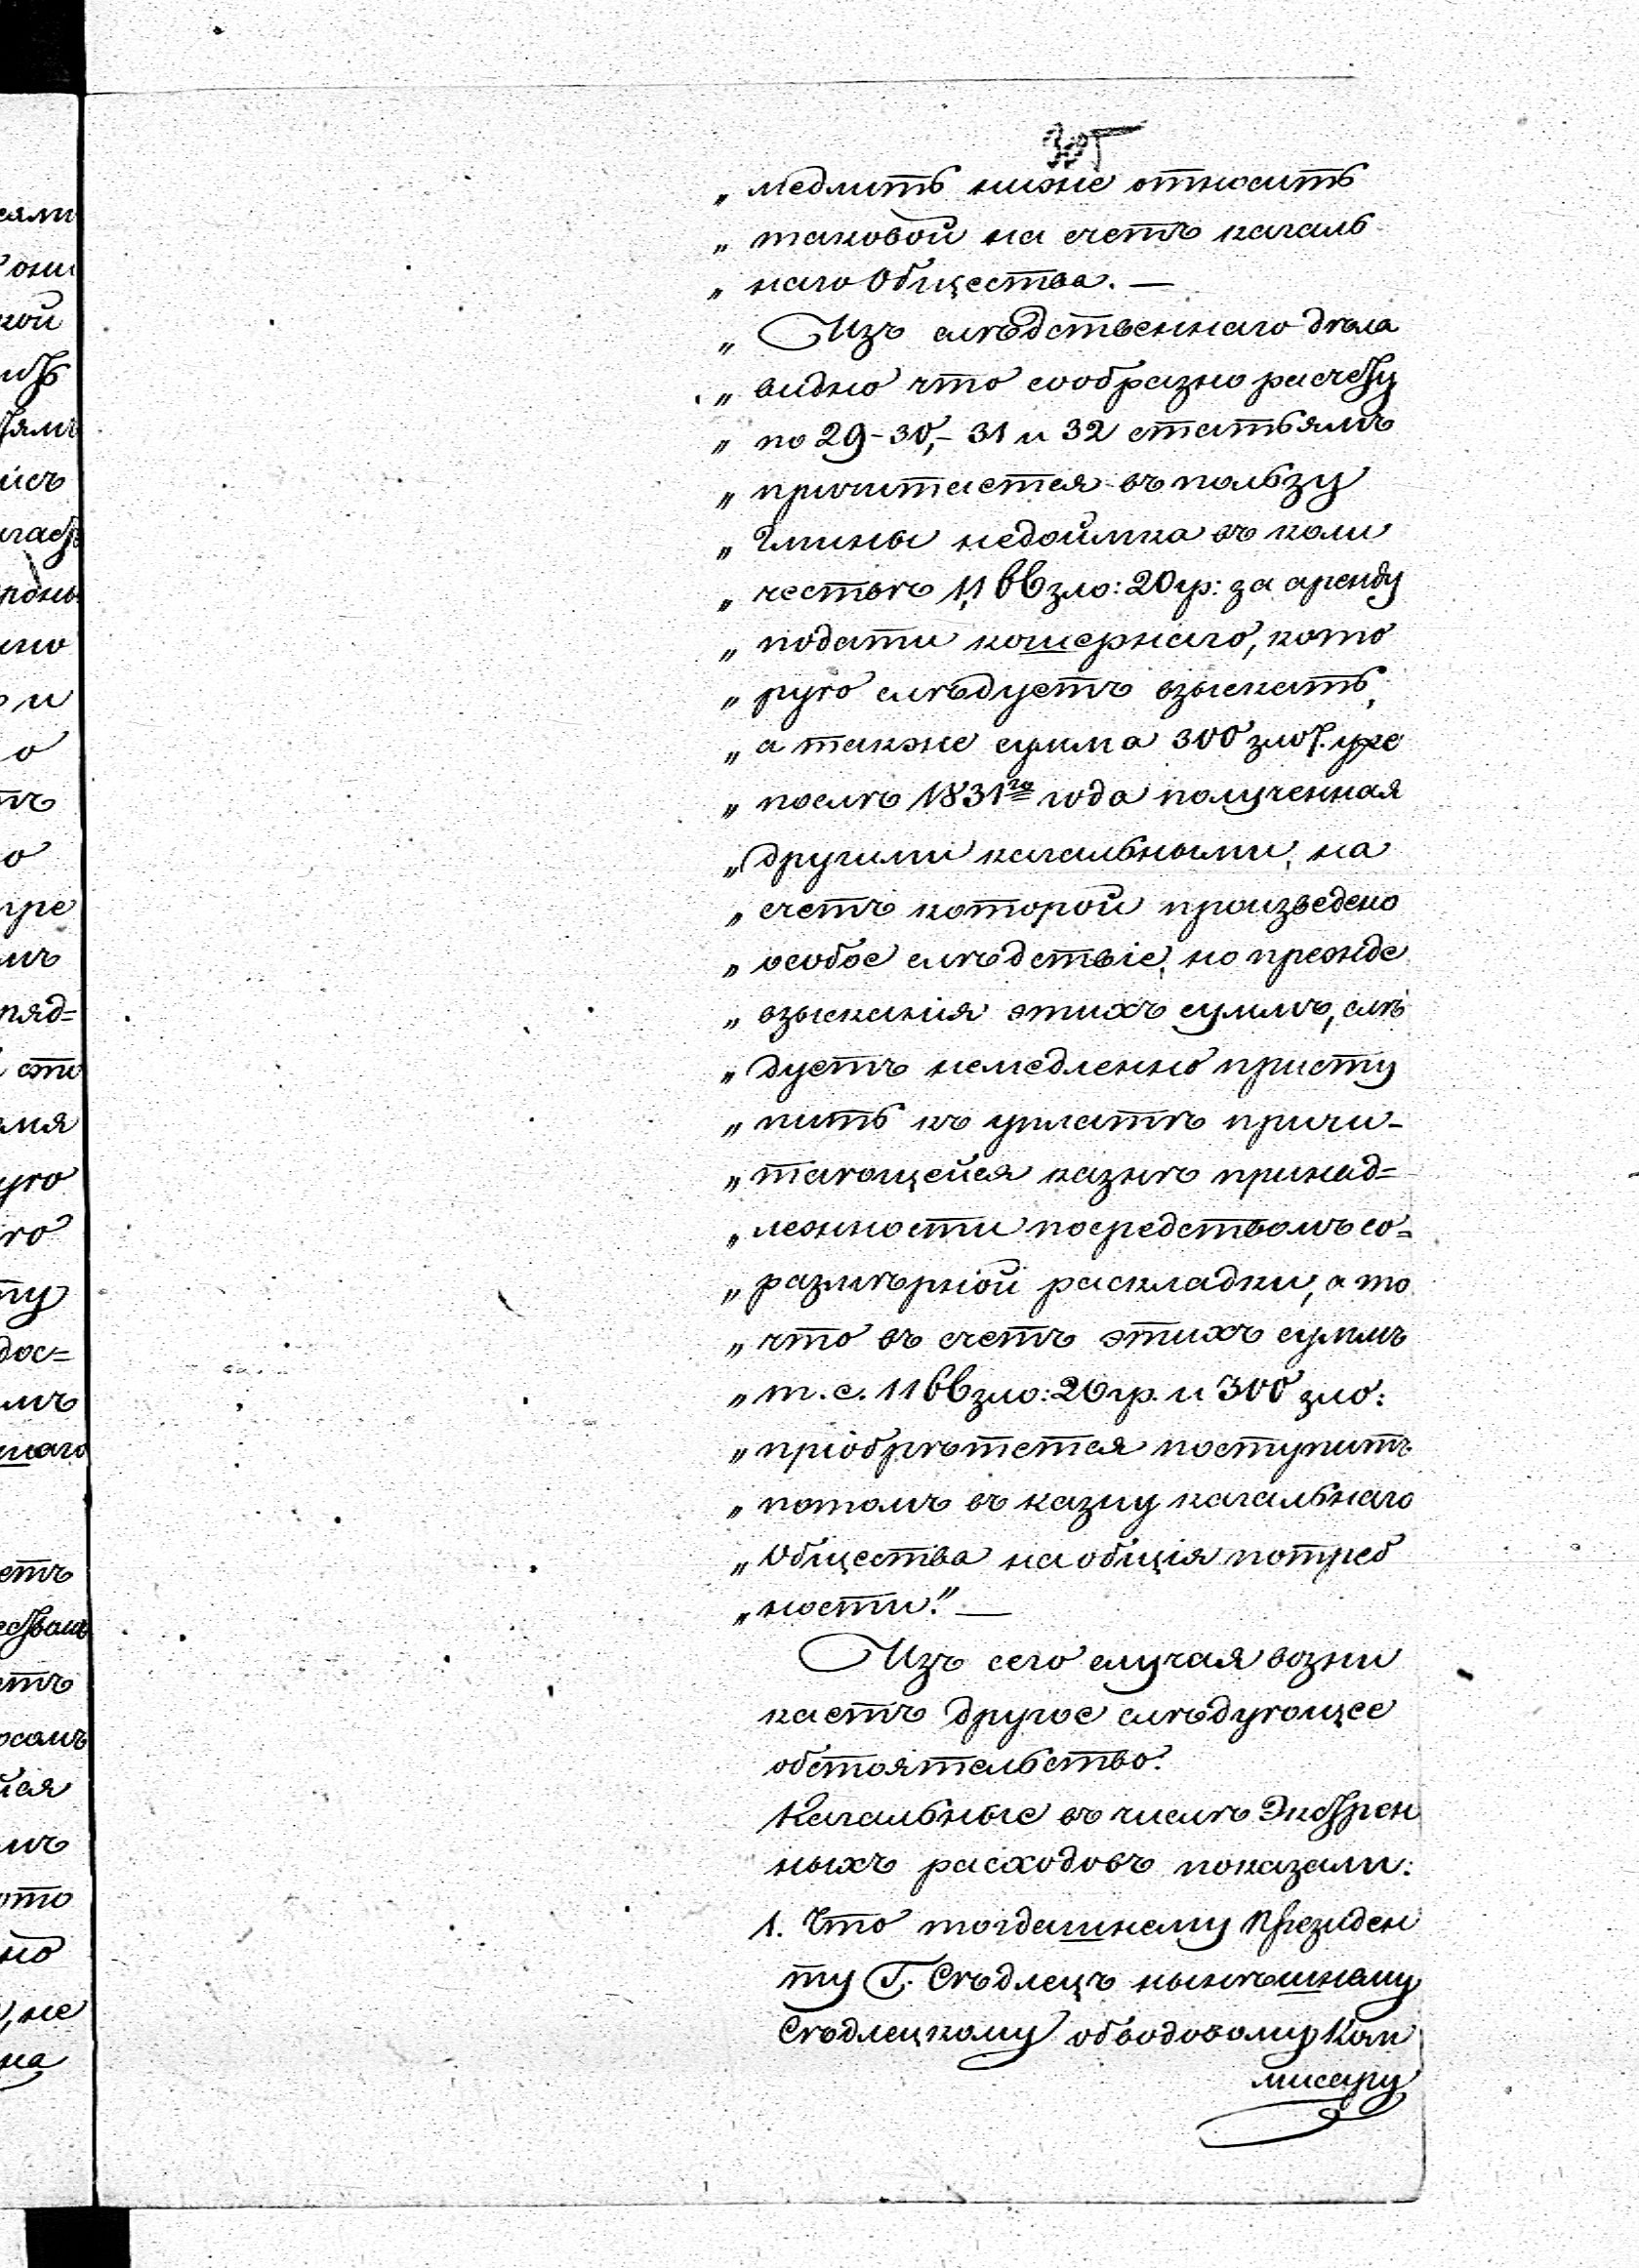 305
„ медлить ниже относить
„ таковой на счетъ кагаль
„ наго Общества. —
„ Изъ слѣдственнаго дѣла
„ видно что сообразно расчету
„ по 29-30,- 31 и 32 статьямъ
„ причитается въ пользу
„ Гмины недоимка въ коли
„ чествѣ 11,66 зло: 20 гр: за аренду
„ подати кошернаго, кото
„ рую слѣдуетъ взыскать,
„ а также сумма 300 злот. уже
„ послѣ 1831го года полученная
„ другими кагальными, на
„ счетъ которой произведено
„ особое слѣдствіе, но прежде
„ взысканія этихъ суммъ, слѣ
„ дуетъ немедленно присту
„ пить къ уплатѣ причи-
„ тающейся казнѣ принад=
„ лежности посредствомъ со=
„ размѣрной раскладки, а то
„ что въ счетъ этихъ суммъ
„ т. е. 1166 зло: 20 гр. и 300 зло:
„ пріобрѣтется поступитъ
„ потомъ въ казну кагальнаго
„ Общества на общія потреб
„ ности." —
Изъ сего случая возни
каетъ другое слѣдующее
обстоятельство.
Кагальные въ числѣ Экстрен
ныхъ расходовъ показали:
1. Что тогдашнему Президен
ту Г. Сѣдлецъ нынѣшнему
Сѣдлецкому обводовому Ком
мисару
сями
они
кой
ить
тямъ
ись
агаст
родны
ано
и
о
тъ
о
тре
мъ
ряд=
эти
мя
ую
го
ту
дос=
мъ
шаго
етъ
ествам
тъ
осомъ
йся
мъ
ото
но
, не
на